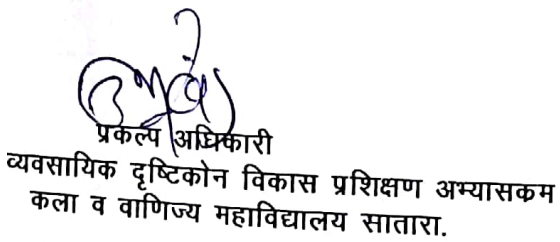 प्रकल्प अधिकारी
व्यवसायिक दृष्टिकोन विकास प्रशिक्षण अभ्यासकम
कला व वाणिज्य महाविद्यालय सातारा.